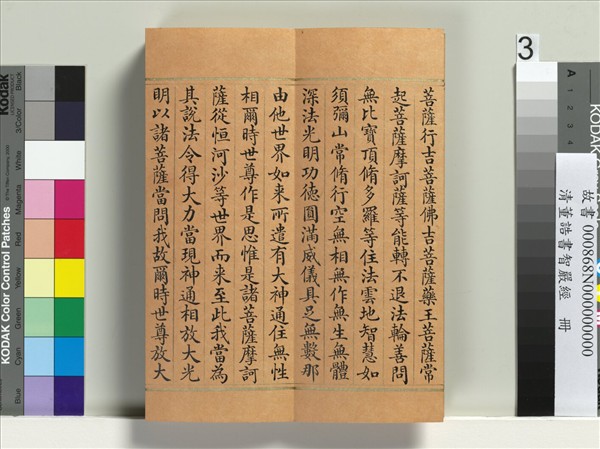 菩薩行吉菩薩佛吉菩薩藥王菩薩常
起菩薩摩訶薩等能轉不退法輪善問
無比寶頂脩多羅等住法雲地智慧如
須彌山常脩行空無相無作無生無體
深法光明功德圓滿威儀具足無數那
由他世界如来所遣有大神通住無性
相爾時世尊作是思惟是諸菩薩摩訶
薩從恒河沙等世界而来至此我當為
其說法令得大力當現神通相放大光
明以諸菩薩當問我故爾時世尊放大
3
故書 000868N000000000
清董誥書智嚴經 冊
A
1
2
3
4
KODAK
Kodak
KODAK Color Control Patches
Black
3/Color
White
Magenta
Red
Yellow
Green
Cyan
Blue